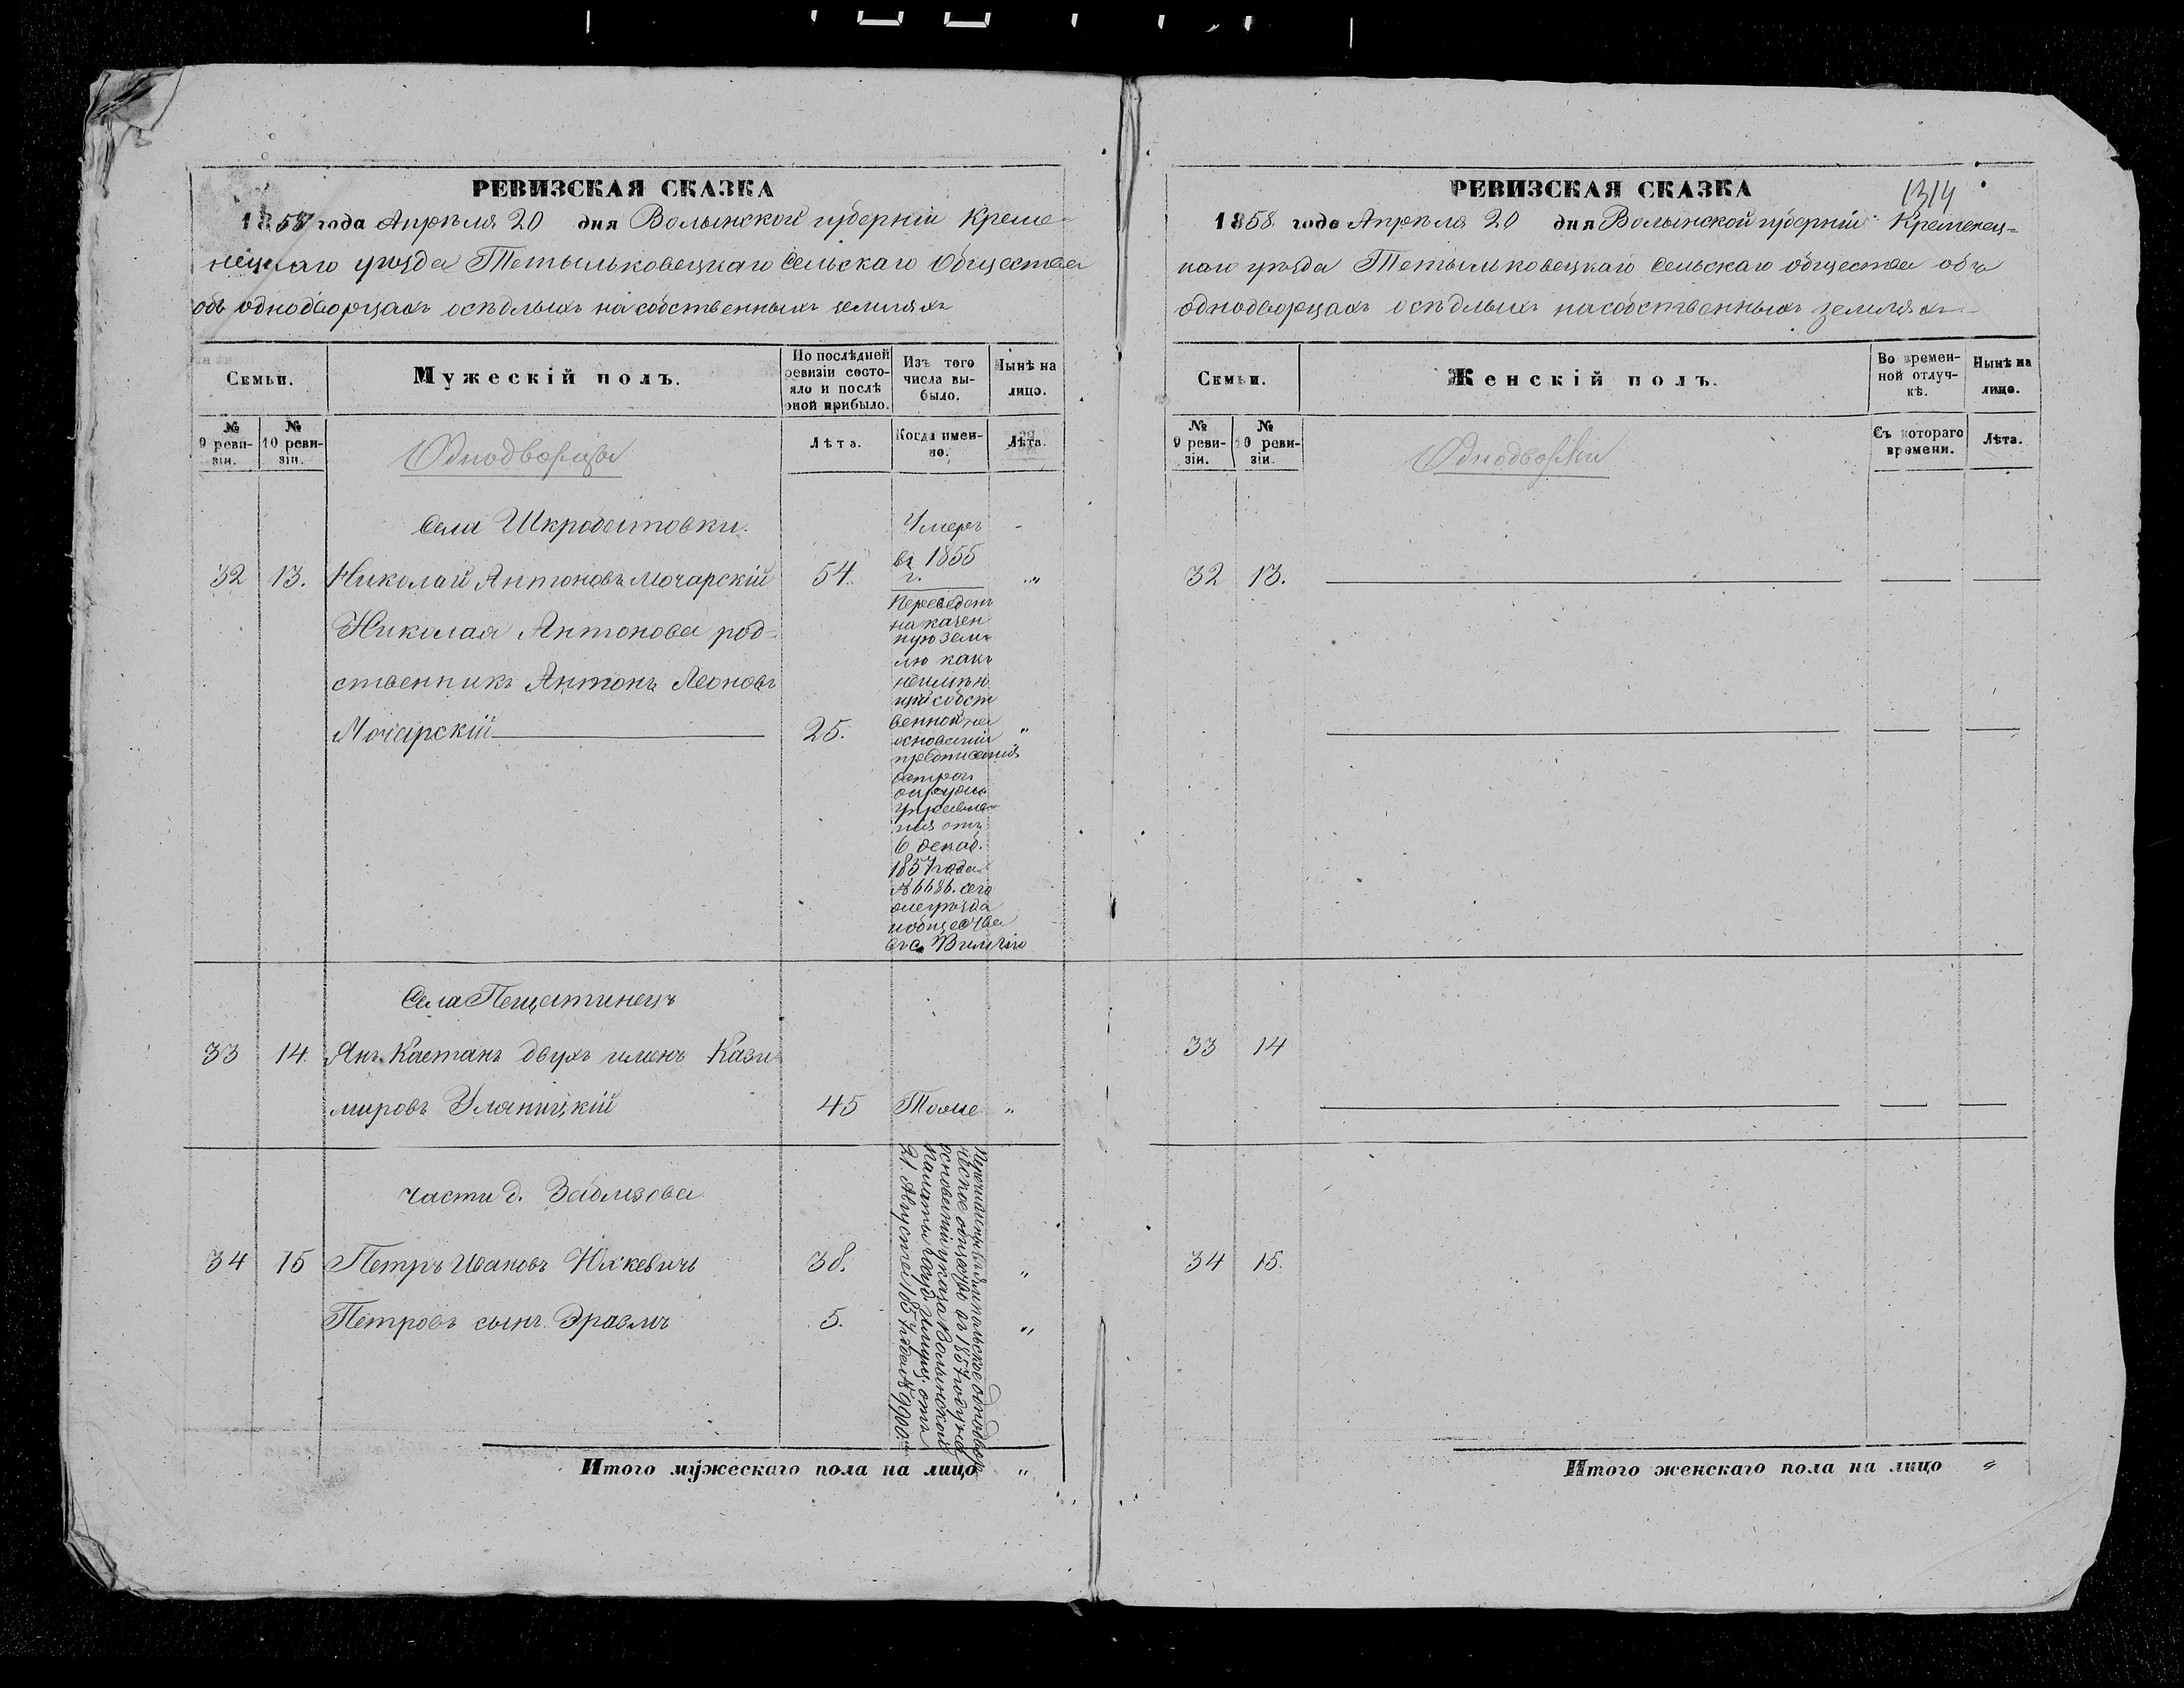 РЕВИЗСКАЯ СКАЗКА
1858 года Апрѣля 20 дня Волынской губерніи Креме-
нецкаго уѣзда Тетыльковецкаго Сельскаго Общества
объ однодворцахъ осѣдлыхъ на собственныхъ земляхъ
Семьи.
Мужескій полъ.
По послѣдней ревизіи состо-яло и послѣ оной прибыло.
Изъ того числа вы-было.
Нынѣ на лицо.
№ 9 реви-зіи.
№ 10 реви-зіи.
Однодворцы
Лѣта.
Когда имен-но.
Лѣта.
Села Шкробатовки.
32 13. Николай Антоновъ Мочарскій 54. Умеръ въ 1855 г. „
Николая Антонова род-
ственникъ Антонъ Леоновъ
Мочарскій 25. „
Переведенъ
на казен
ную зем-
лю какъ
неимѣю
щій собст
венной на
основаніи
предписанія
округ
управле-
нія отъ
6 декаб.
1857 года
№ 6686. сего
же уѣзда
и общества
Села Пещатинецъ
33 14. Янъ Каетанъ двухъ именъ Кази-
мировъ Уляницкій 45 Тоже „
части д. Заблизова
34 15 Петръ Ивановъ Юхкевичъ 38. „
Петровъ сынъ Эразмъ 5. „
Перечислены въ Ямпольское однодвор
ческое общество въ 1857 году на
основаніи указа Волынской
палаты Госуд. Имущ. отъ
21. Августа 1857 года № 9900.
Итого мужескаго пола на лицо „
РЕВИЗСКАЯ СКАЗКА
1314
1858. года Апрѣля 20 дня Волынской губерніи Кременец-
каго уѣзда Тетыльковецкаго Сельскаго общества объ
однодворцахъ осѣдлыхъ на собственныхъ земляхъ
Семьи.
Женскій полъ.
Во времен-ной отлуч-кѣ.
Нынѣ на лицо.
№ 9 реви-зіи.
№ 10 реви-зіи.
Однодворки
Съ котораго времени.
Лѣта.
32 13.
33 14
34 15.
Итого женскаго пола на лицо „